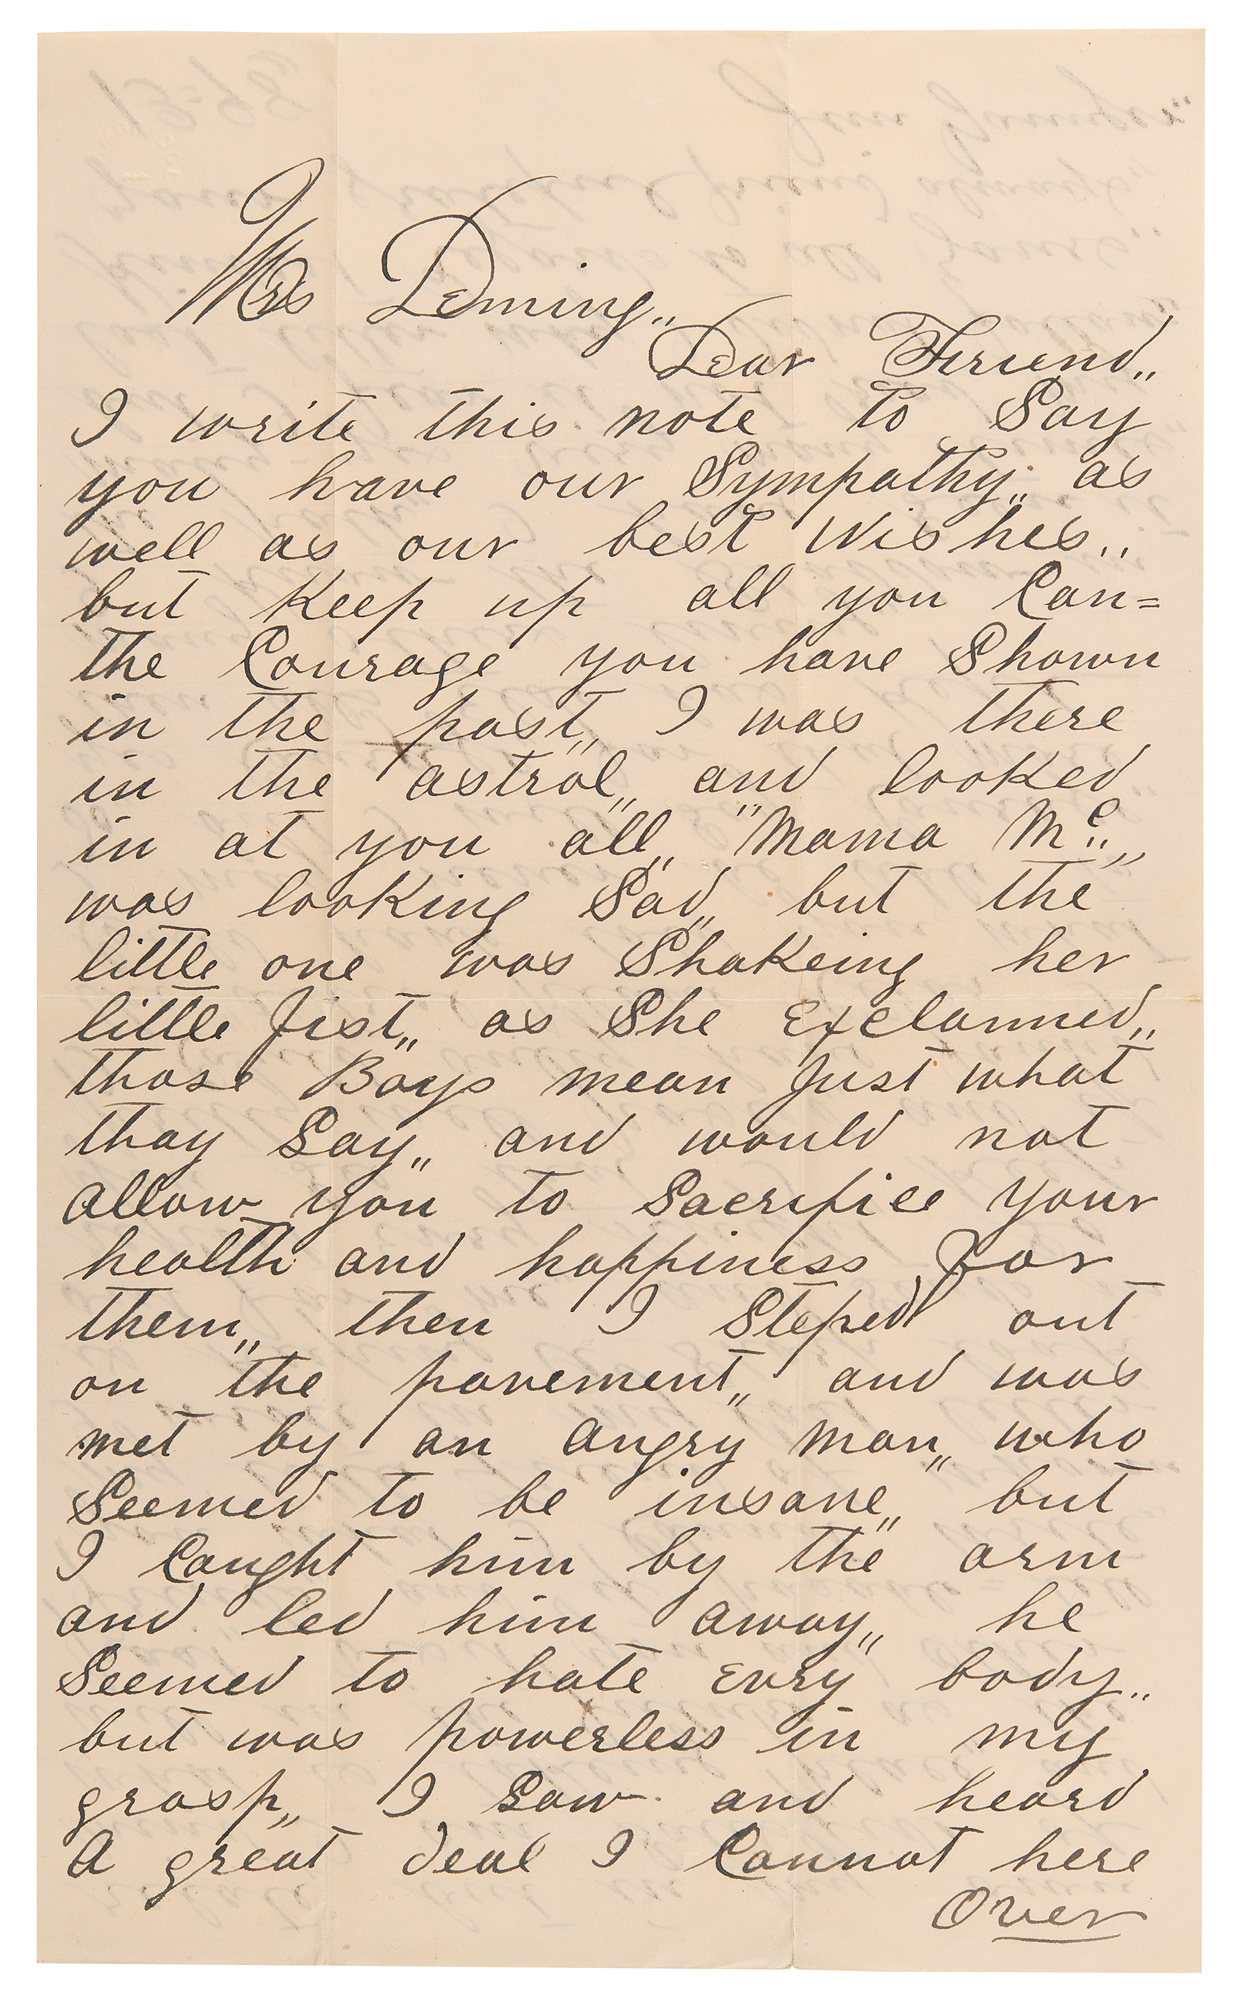 Mrs Deming,,
Dear Friend,,
I write this note to Say
you have our Sympathy,, as
well as our best Wishes,,
but Keep up all you Can=
the Courage you have Shown
in the past,, I was there
in the astral,, and looked
in at you all,, "Mama Mc",,
was looking Sad,, but the
little one was Shakeing her
little fist,, as She Exclamed,,
those Boys mean Just what
thay Say,, and would not
allow you to Sacrifice your
health and happiness for
them,, then I Steped out
on the pavement,, and was
met by an angry man,, who
Seemed to be insane,, but
I Caught him by the arm
and led him away,, he
Seemed to hate Evry body,,
but was powerless in my
grasp,, I Saw and heard
A great deal I Cannot here
Over